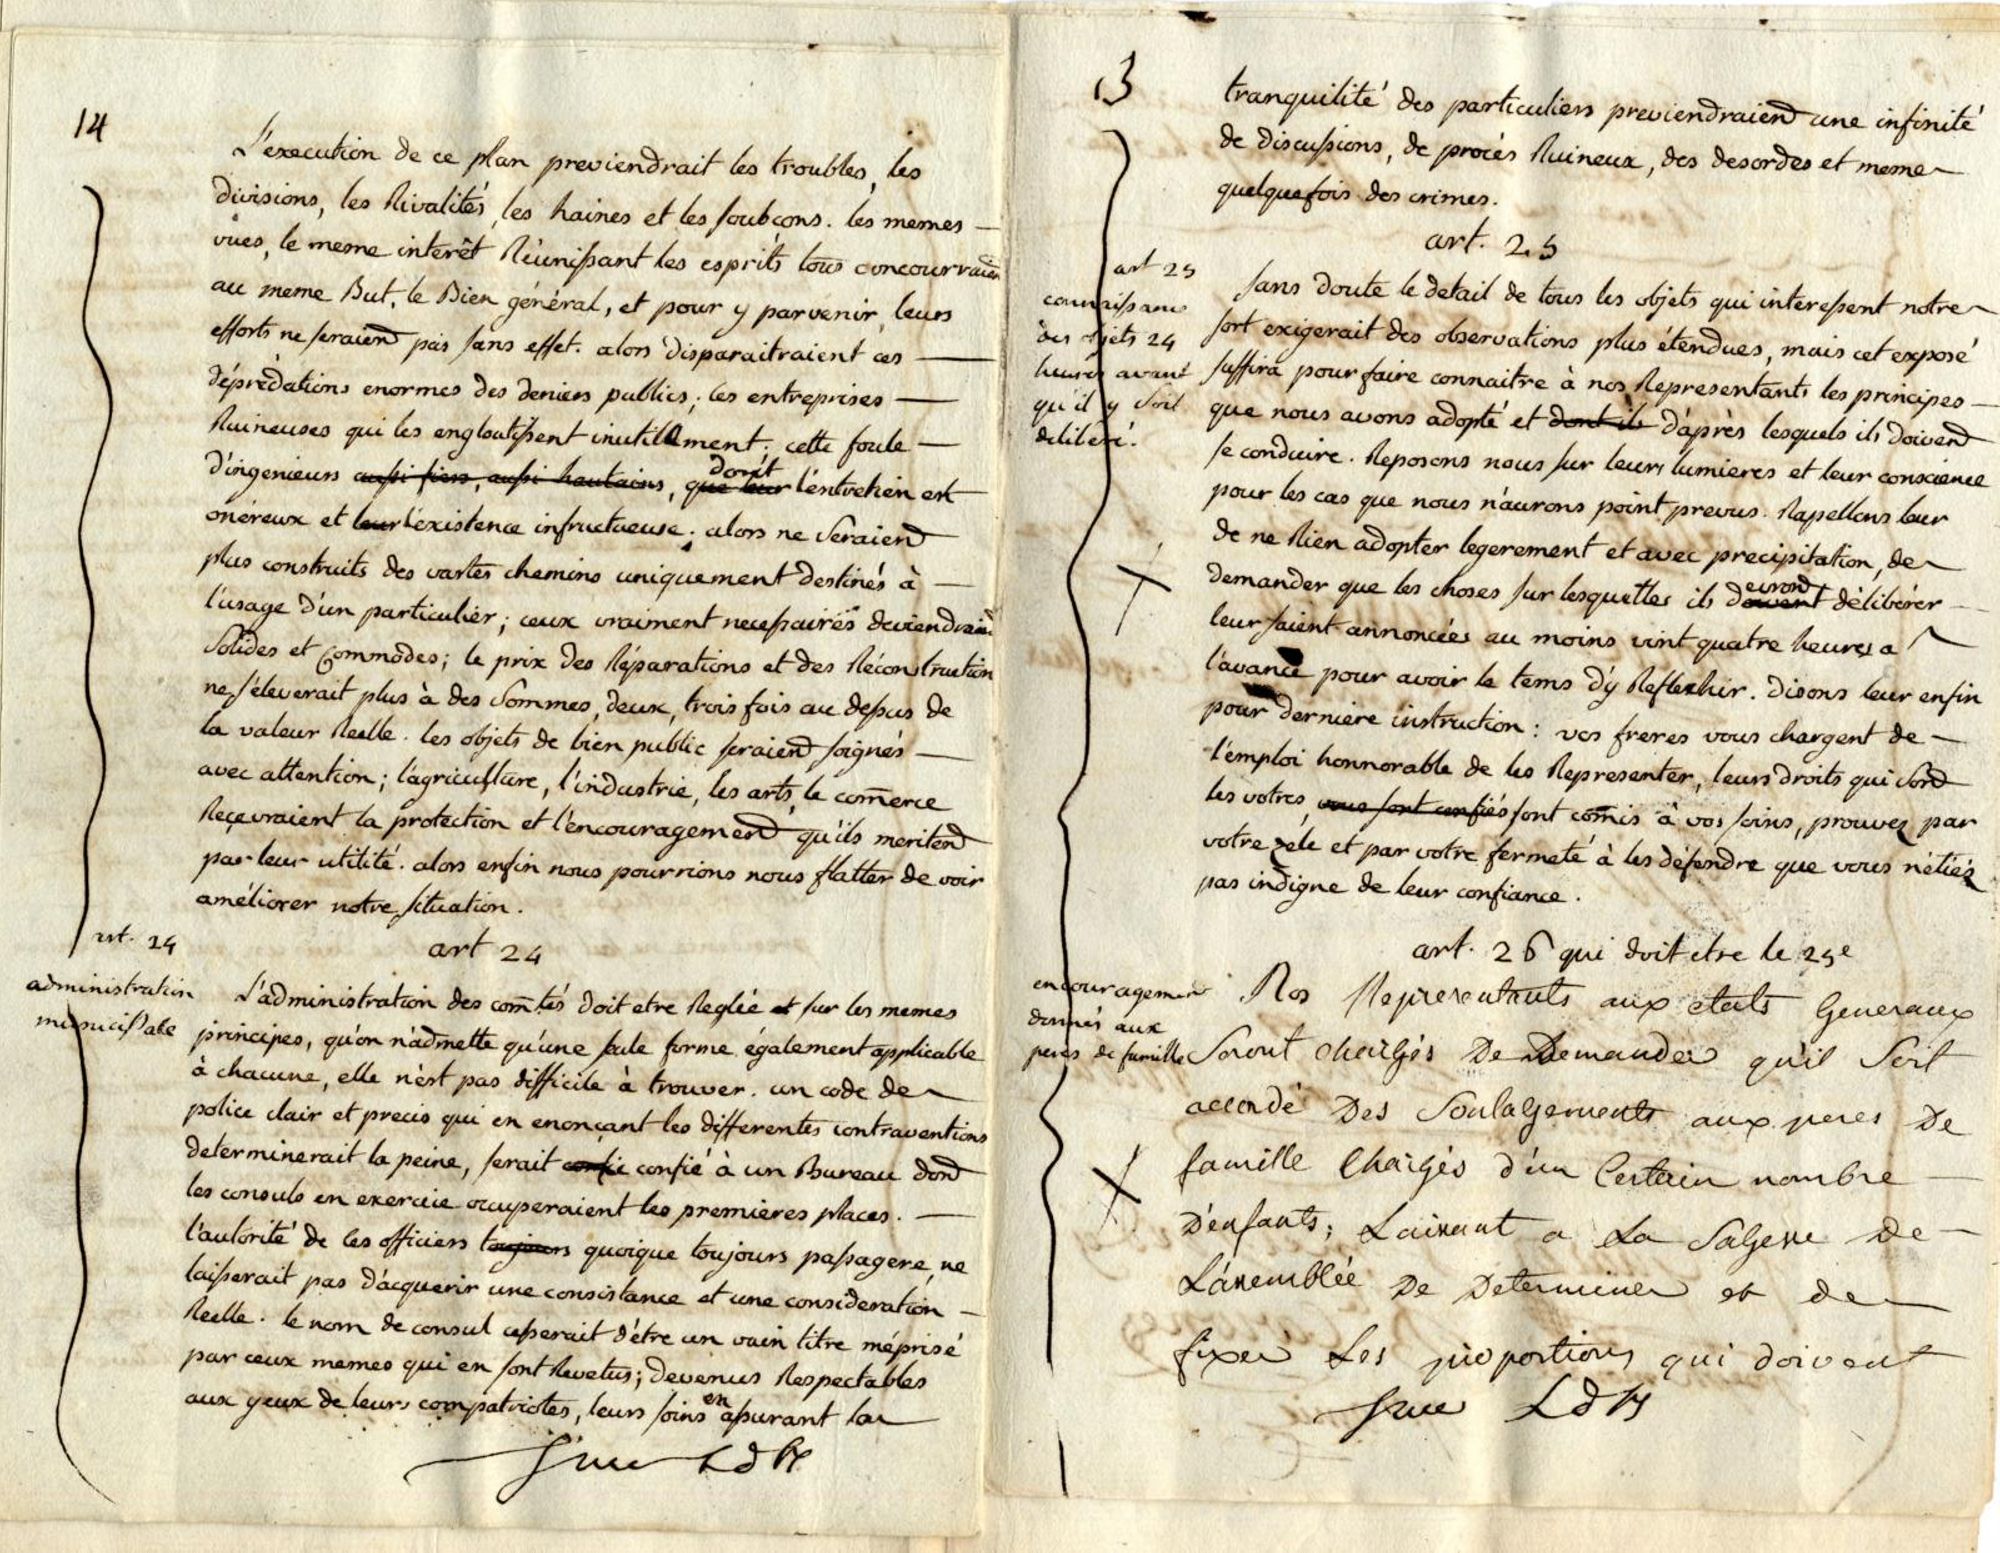 14
L'execution de ce plan previendrait les troubles, les
divisions, les Rivalités, les haines et les soubçons. les memes
vües, le meme interêt Réunissant les esprits tous concourraient
au meme But, le Bien général, et pour y parvenir, leurs
efforts ne seraient pas sans effet. alors disparaitraient ces
déprédations enormes des deniers publics; les entreprises
Ruineuses qui les engloutissent inutilement; cette foule
d'ingenieurs aussi fiers, aussi hautains, que leur dont l'entretien est
onéreux et leur l'éxistence infructueuse; alors ne seraient
plus construits des vastes chemins uniquement destinés à
l'usage d'un particulier; ceux vraiment necessaires deviendraient
solides et commodes; le prix des Réparations et des Réconstruction
ne s'éleverait plus à des sommes, deux, trois fois au dessus de
la valeur Réelle. les objets de bien public seraient soignés
avec attention; l'agriculture, l'industrie, les arts, le com̄erce
Reçevraient la protection et l'éncouragement qu'ils meritent
par leur utilité. alors enfin nous pourrions nous flatter de voir
améliorer notre situation.
art 24
art. 24
administration
municipale
L'administration des com̄tés doit etre Reglée et sur les memes
principes, qu'on n'admette qu'une seule forme également applicable
à chacune, elle n'est pas difficile à trouver. un code de
police clair et precis qui en enonçant les differentes contraventions
determinerait la peine, serait confié confié à un Bureau dont
les consuls en exercice occuperaient les premières places.
l'autorité de ces officiers toujours quoique toujours passagere, ne
laisserait pas d'acquerir une consistance et une consideration
Réelle. le nom de consul cesserait d'être un vain titre méprisé
par ceux memes qui en sont Revetus; devenus Respectables
aux yeux de leurs compatriotes, leurs soins en assurant la
tranquilité des particuliers previendraient une infinité
de discussions, de procés Ruineux, des desordes et meme
quelquefois des crimes.
art. 25
art 25
connaissance
des objets 24
heures avant
qu'il y soit
deliberé.
Sans doute le detail de tous les objets qui interessent notre
sort exigerait des observations plus étendues, mais cet exposé
suffira pour faire connaitre à nos Representants les principes
que nous avons adopté et dont ils d'après lesquels ils doivent
se conduire. Reposons nous sur leurs lumieres et leur conscience
pour les cas que nous n'aurons point prevus. Rapellons leur
de ne Rien adopter legerement et avec precipitation, de
demander que les choses sur lesquelles ils devront délibérer
leur soient annoncées au moins vint quatre heures a
l'avance pour avoir le tems d'y Reflechir. disons leur enfin
pour derniere instruction: vos freres vous chargent de
l'emploi honnorable de les Representer, leurs droits qui sont
les votres, vous sont confiés sont com̄is à vos soins, prouvez par
votre zéle et par votre fermeté à les défendre que vous n'étiés
pas indigne de leur confiance.
art. 26 qui doit etre le 25e
encouragement
donnés aux
peres de famille
Nos Representants aux etats Generaux
Seront chargés De Demander qu'il Soit
accordé Des Soulagements aux peres De
famille Chargés d'un Certain nombre
D'enfants; Laissant a La Sagesse De
L'assemblée De Determiner et de
fixer Les proportions qui doivent